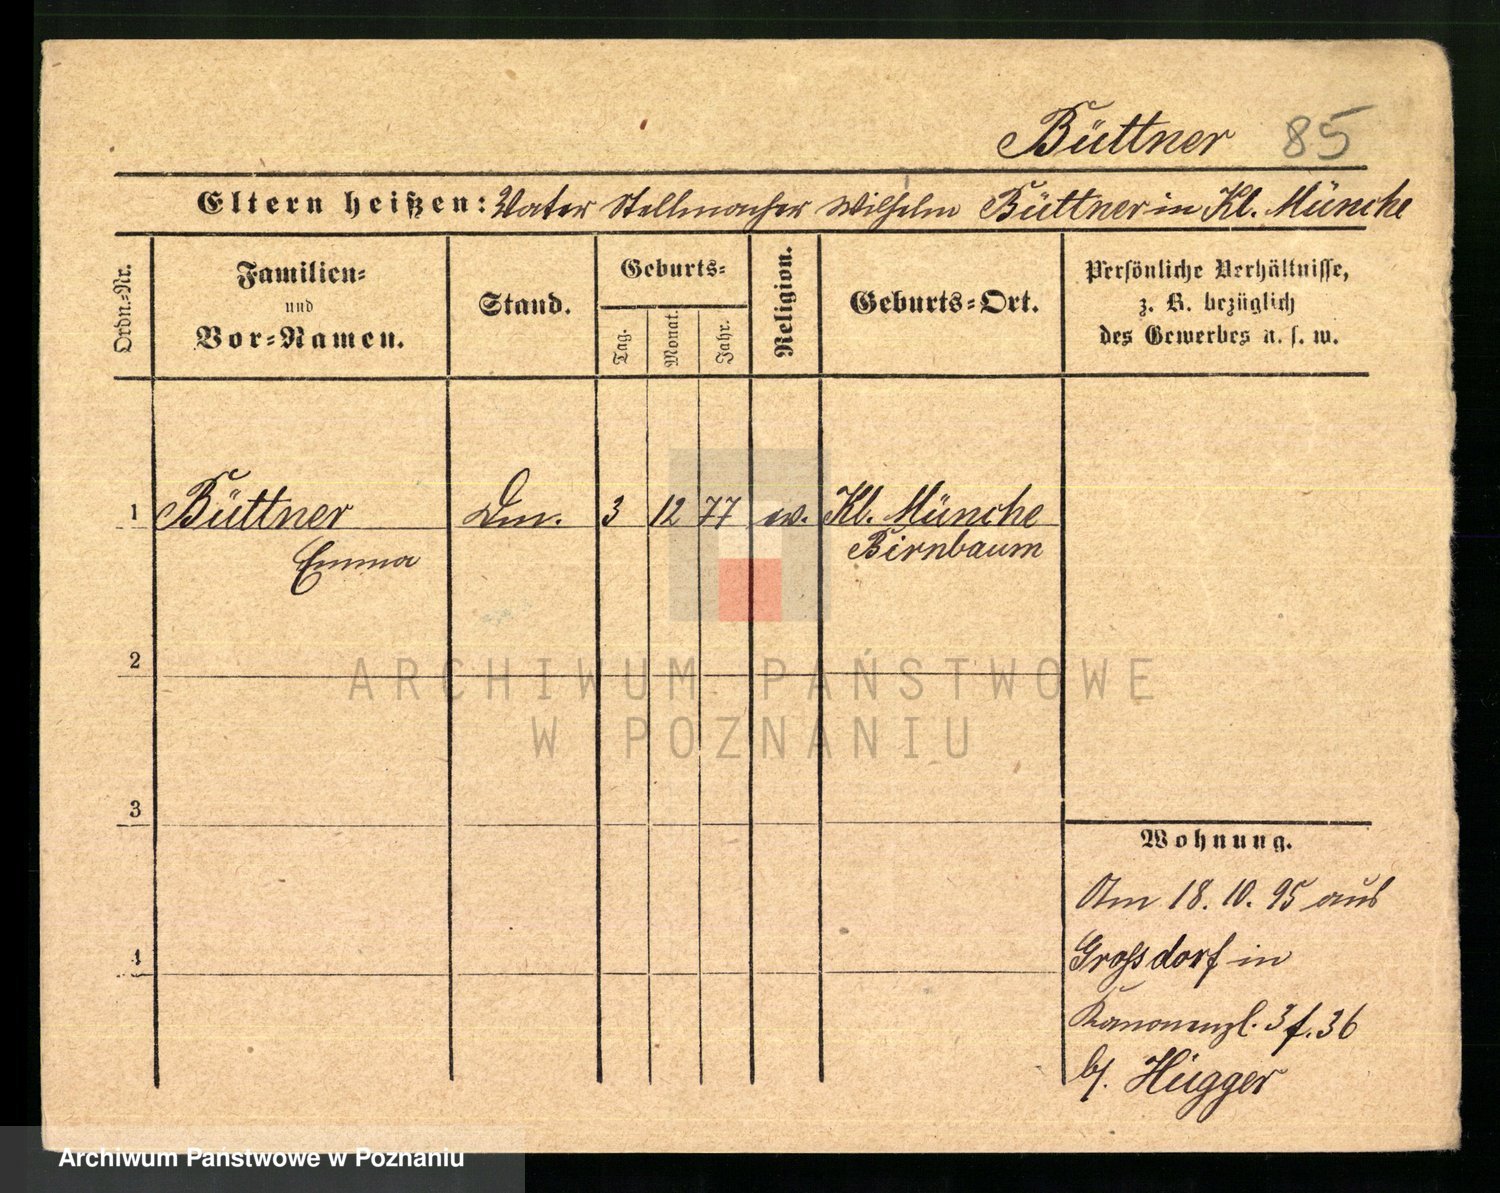 Büttner 85
Eltern heißen: Vater Stellmacher Wilhelm Büttner in Kl. Münche
Ordn.-Nr.
Familien-
und
Vor-Namen.
Stand.
Geburts-
Tag.
Monat.
Jahr.
Religion.
Geburts-Ort.
Persönliche Verhältnisse,
z. B. bezüglich
des Gewerbes u. s. w.
1 Büttner 3 12 77 ev. Kl. Münche
Emma Birnbaum
2
ARCHIWUM PAŃSTWOWE
W POZNANIU
3
Wohnung.
Am 18. 10. 95 aus
4
Grossdorf in
Kanonenpl. 3 f. 36
b/. Hügger
Archiwum Państwowe w Poznaniu